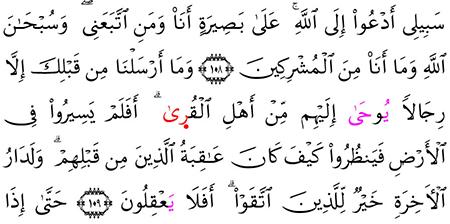 سَبِيلِى أَدْعُوا۟ إِلَى ٱللَّهِ ۚ عَلَىٰ بَصِيرَةٍ أَنَا۠ وَمَنِ ٱتَّبَعَنِى ۖ وَسُبْحَـٰنَ
ٱللَّهِ وَمَا أَنَا۠ مِنَ ٱلْمُشْرِكِينَ ﴿١٠٨﴾ وَمَا أَرْسَلْنَا مِن قَبْلِكَ إِلَّا
رِجَالًا يُوحَىٰ إِلَيْهِم مِّنْ أَهْلِ ٱلْقُرِىٰ ۗ أَفَلَمْ يَسِيرُوا۟ فِى
ٱلْأَرْضِ فَيَنظُرُوا۟ كَيْفَ كَانَ عَـٰقِبَةُ ٱلَّذِينَ مِن قَبْلِهِمْ ۗ وَلَدَارُ
ٱلْآخِرَةِ خَيْرٌ لِّلَّذِينَ ٱتَّقَوْا۟ ۗ أَفَلَا يَعْقِلُونَ ﴿١٠٩﴾ حَتَّىٰ إِذَا